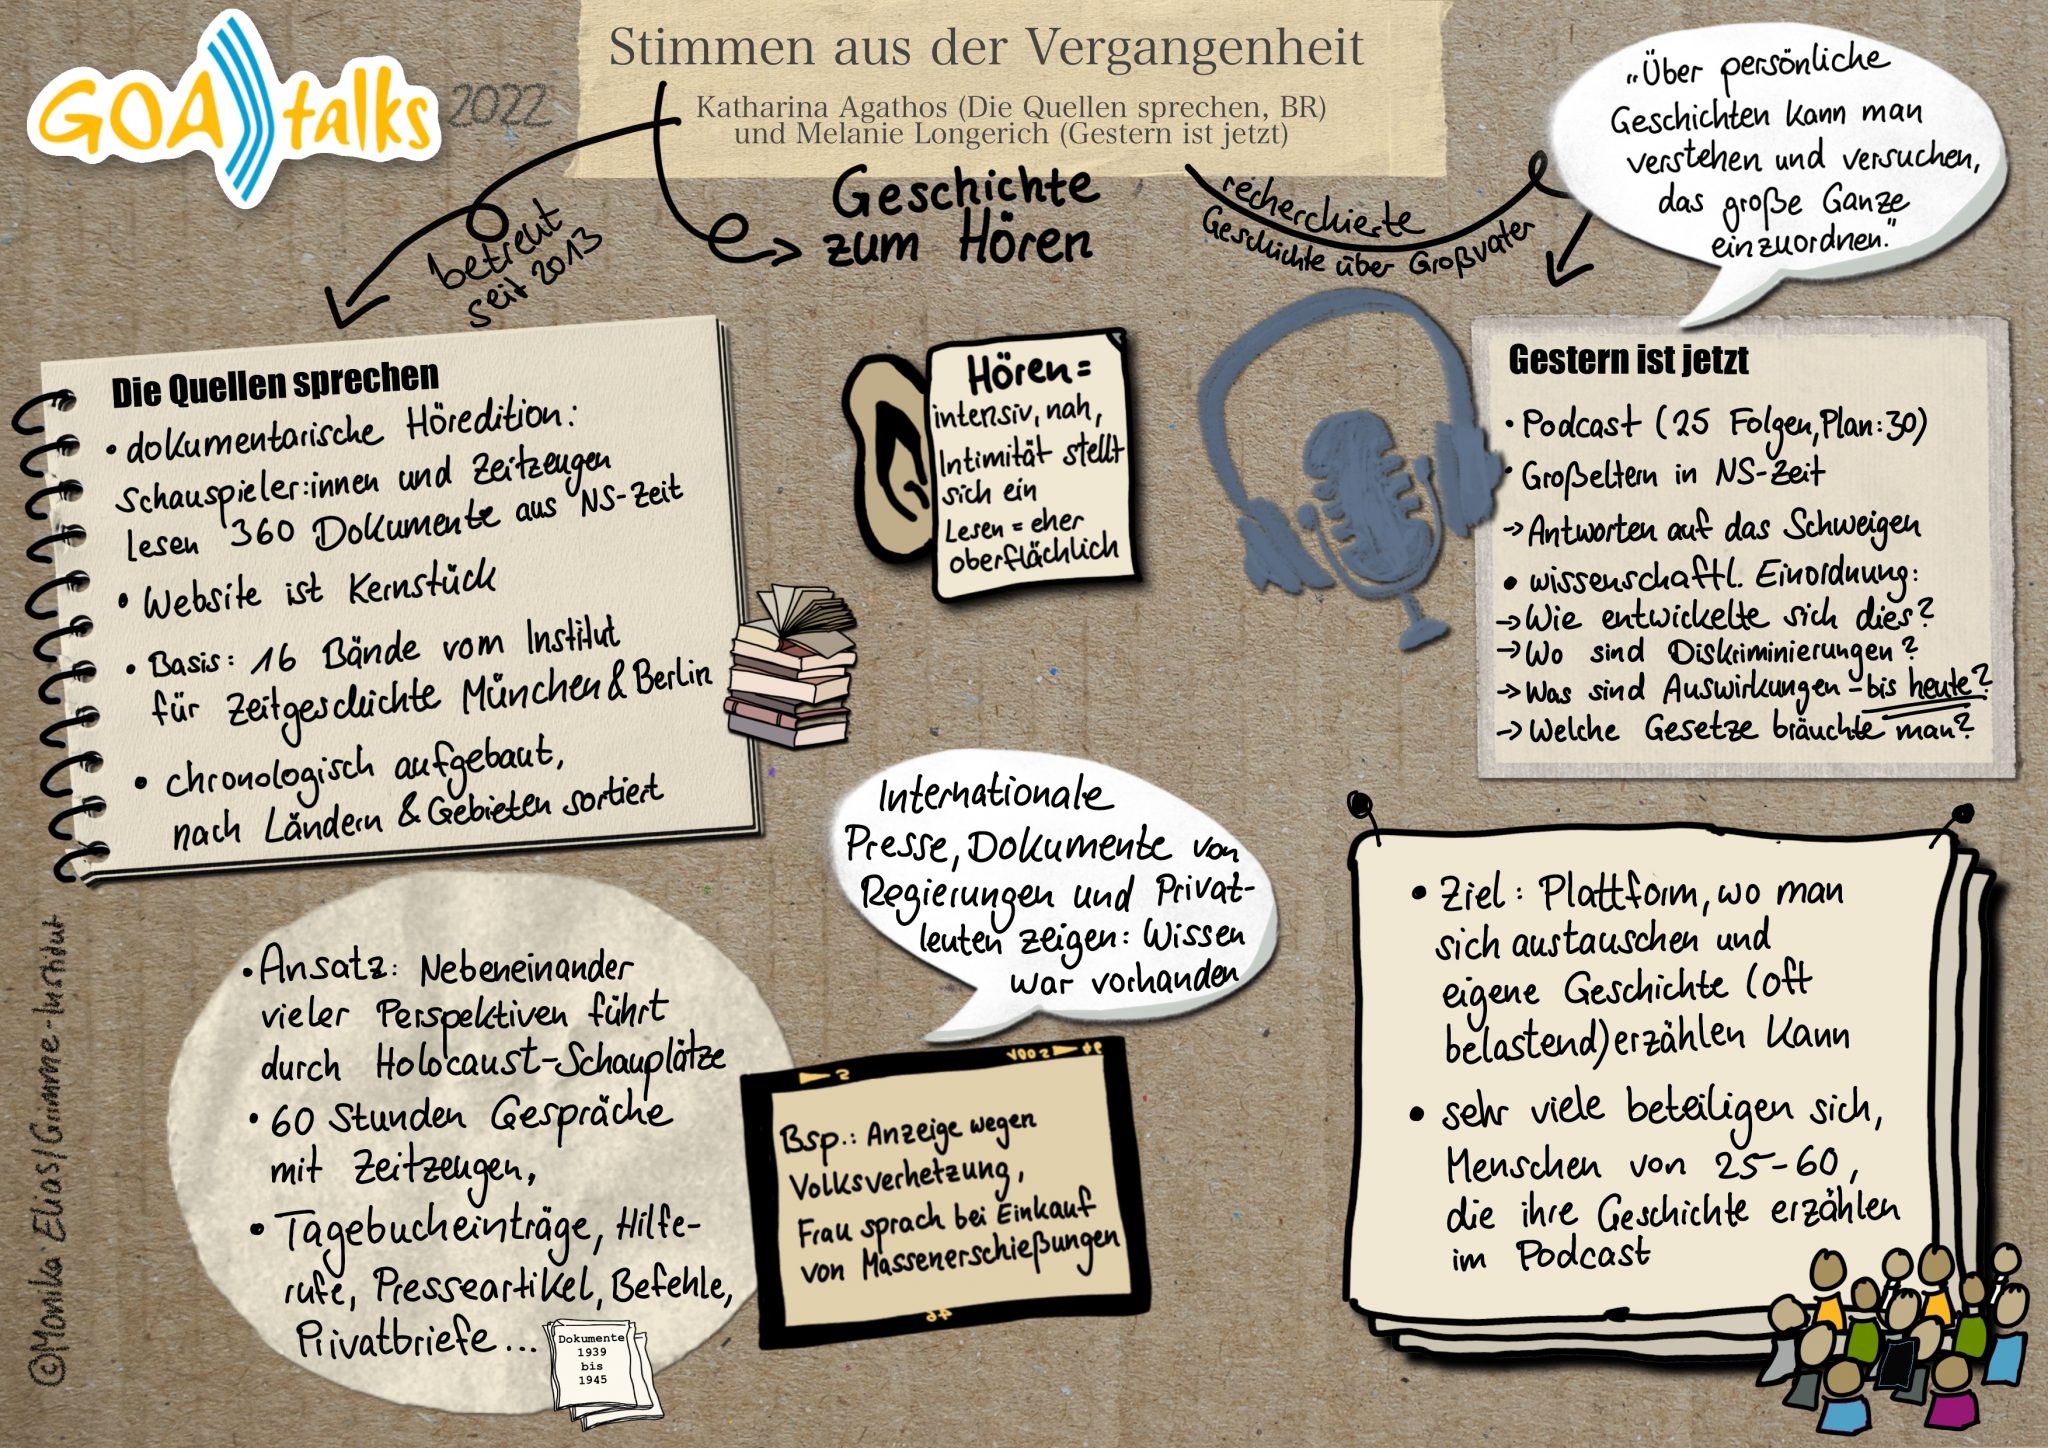 GOA talks 2022
Stimmen aus der Vergangenheit
Katharina Agathos (Die Quellen sprechen, BR)
und Melanie Longerich (Gestern ist jetzt)
Geschichte
zum Hören
betreut
seit 2013
recherchierte
Geschichte über Großvater
„Über persönliche
Geschichten kann man
verstehen und versuchen,
das große Ganze
einzuordnen."
Die Quellen sprechen
• dokumentarische Höredition:
Schauspieler:innen und Zeitzeugen
lesen 360 Dokumente aus NS-Zeit
• Website ist Kernstück
• Basis: 16 Bände vom Institut
für Zeitgeschichte München & Berlin
• chronologisch aufgebaut,
nach Ländern & Gebieten sortiert
Hören =
intensiv, nah,
Intimität stellt
sich ein
Lesen = eher
oberflächlich
Gestern ist jetzt
• Podcast (25 Folgen, Plan: 30)
• Großeltern in NS-Zeit
→ Antworten auf das Schweigen
• wissenschaftl. Einordnung:
→ Wie entwickelte sich dies?
→ Wo sind Diskriminierungen?
→ Was sind Auswirkungen - bis heute?
→ Welche Gesetze bräuchte man?
• Ansatz: Nebeneinander
vieler Perspektiven führt
durch Holocaust-Schauplätze
• 60 Stunden Gespräche
mit Zeitzeugen,
• Tagebucheinträge, Hilfe-
rufe, Presseartikel, Befehle,
Privatbriefe...
Dokumente
1939
bis
1945
Internationale
Presse, Dokumente von
Regierungen und Privat-
leuten zeigen: Wissen
war vorhanden
Bsp.: Anzeige wegen
Volksverhetzung,
Frau sprach bei Einkauf
von Massenerschießungen
• Ziel: Plattform, wo man
sich austauschen und
eigene Geschichte (oft
belastend) erzählen kann
• sehr viele beteiligen sich,
Menschen von 25-60,
die ihre Geschichte erzählen
im Podcast
©Monika Elias/Grimme-Institut